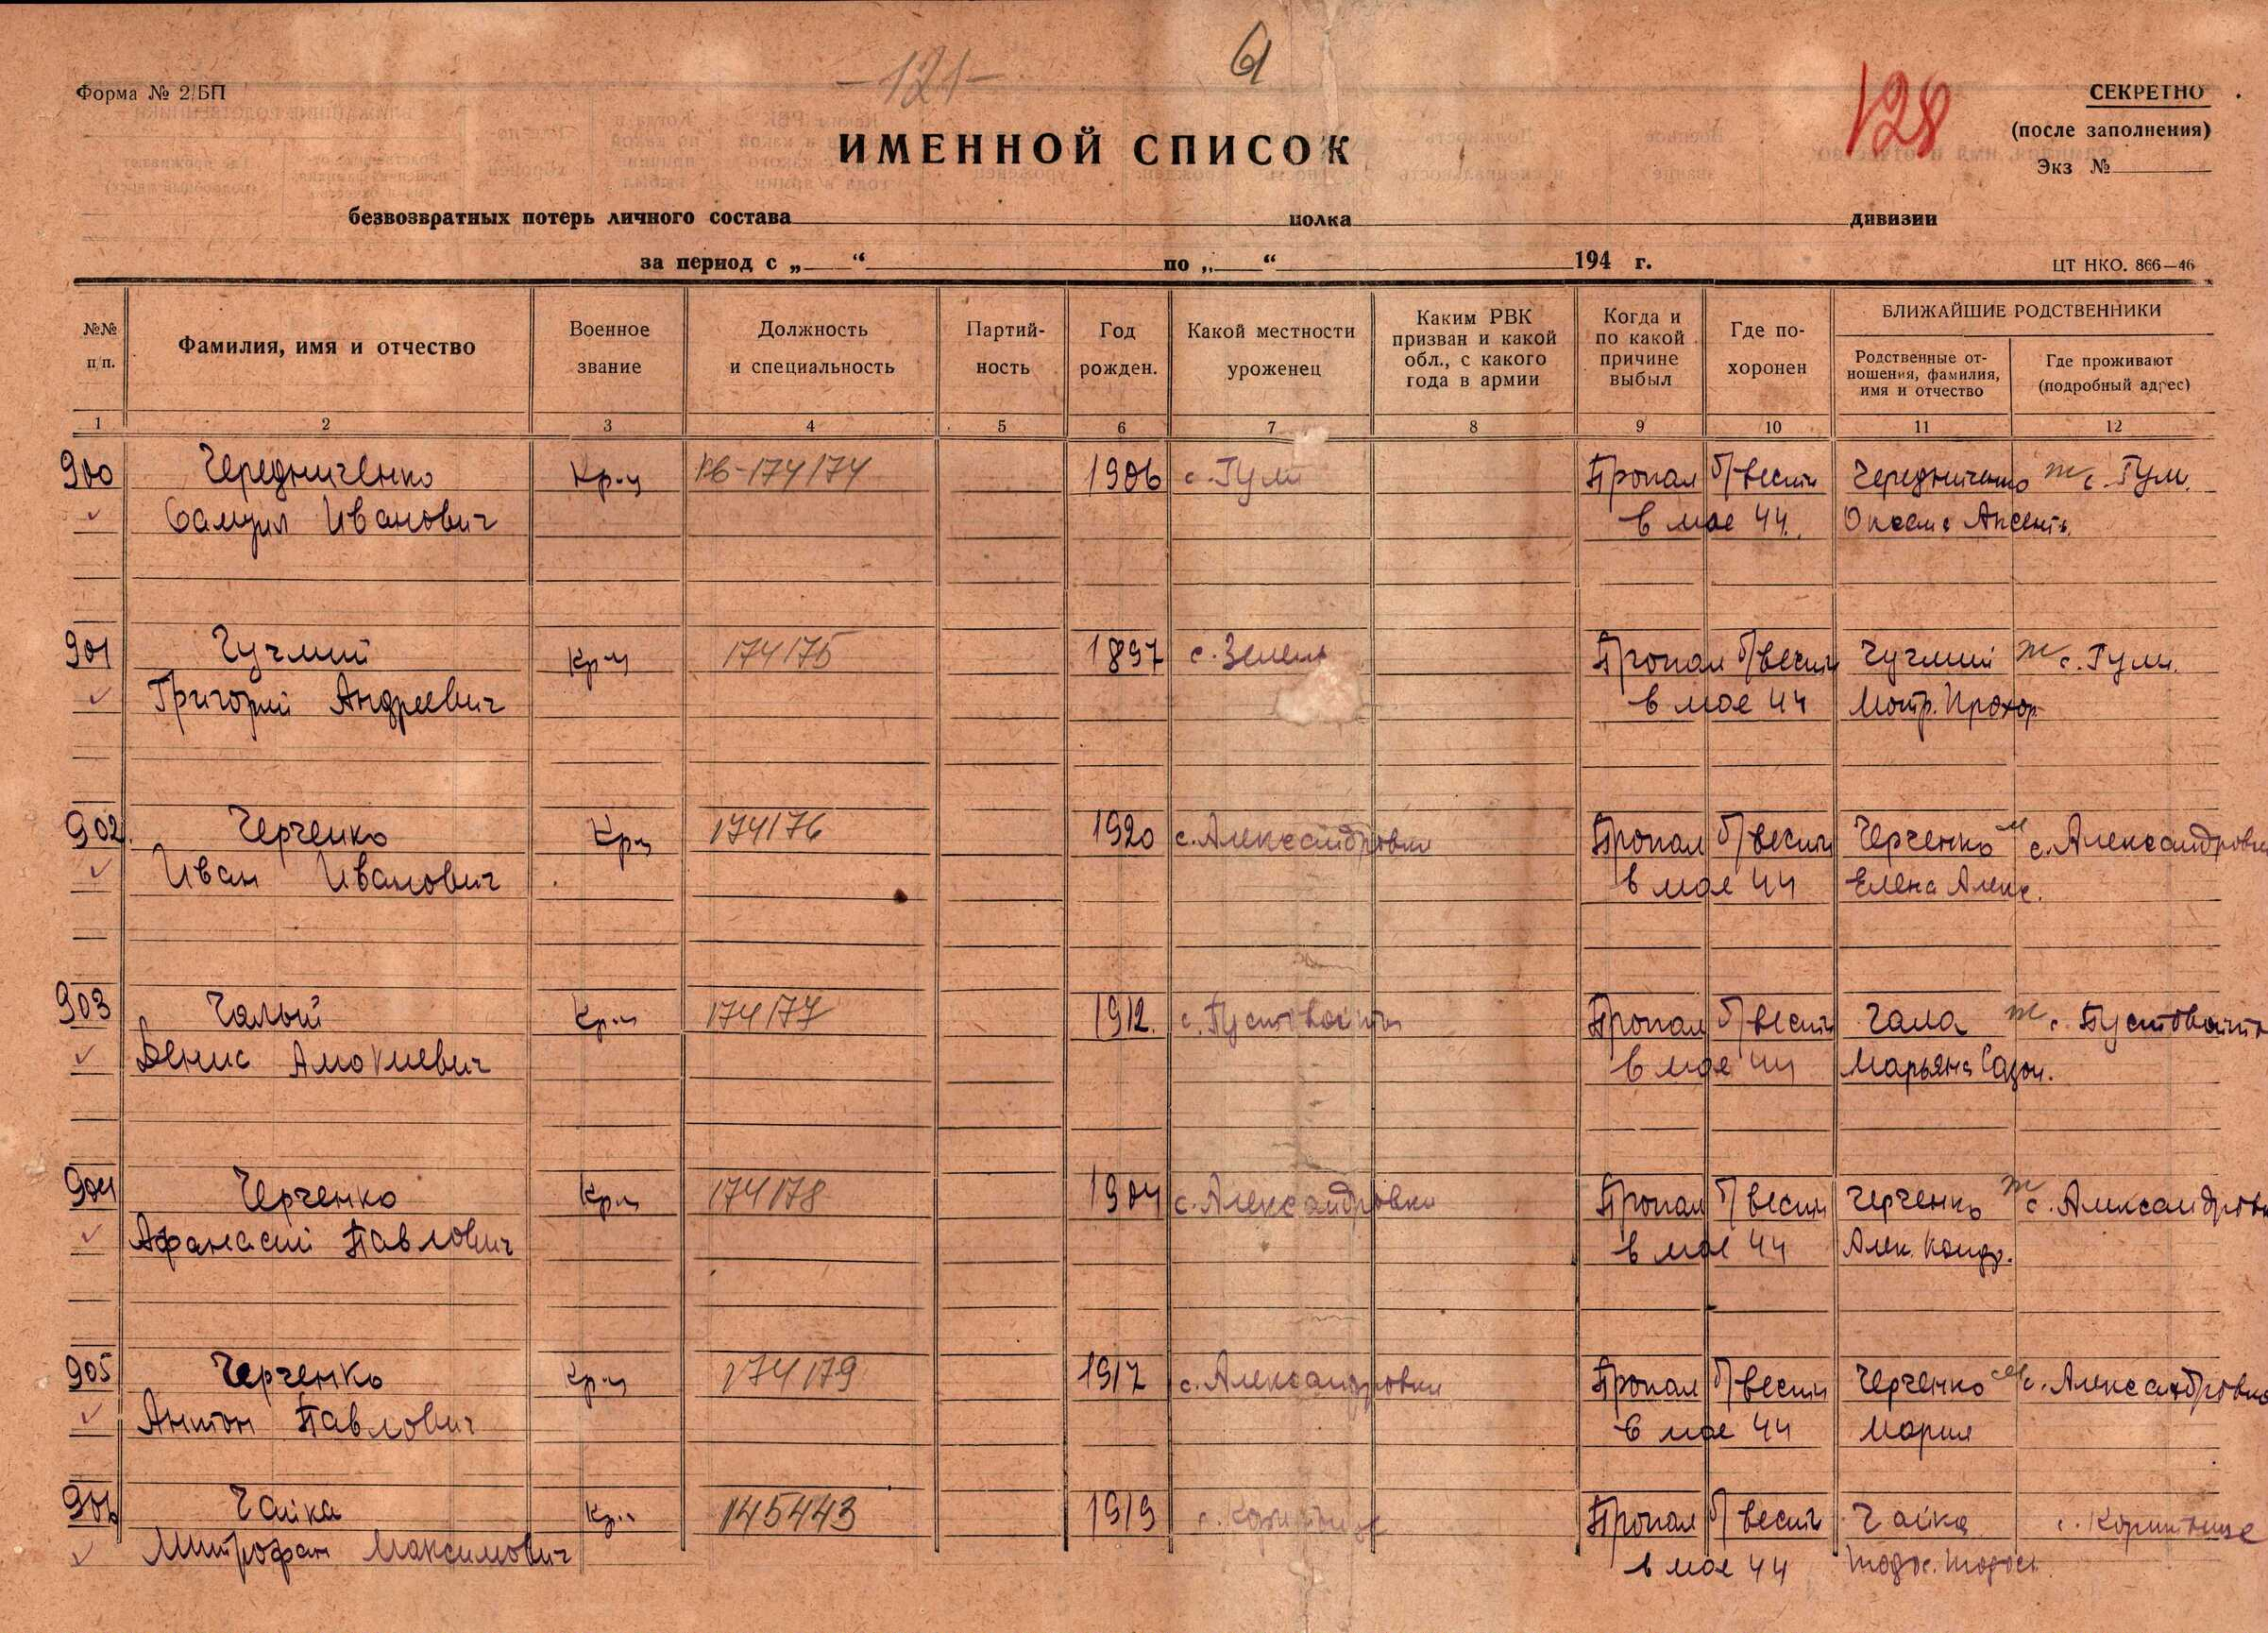 -121-
61
128
Форма № 2/БП
СЕКРЕТНО
(после заполнения)
Экз №
ИМЕННОЙ СПИСОК
безвозвратных потерь личного состава полка дивизии
за период с „ “ по „ “ 194 г.
ЦТ НКО. 866—46
№№ п/п.
Фамилия, имя и отчество
Военное звание
Должность и специальность
Партий-ность
Год рожден.
Какой местности уроженец
Каким РВК призван и какой обл., с какого года в армии
Когда и по какой причине выбыл
Где по-хоронен
БЛИЖАЙШИЕ РОДСТВЕННИКИ
Родственные от-ношения, фамилия, имя и отчество
Где проживают (подробный адрес)
1 2 3 4 5 6 7 8 9 10 11 12
900 Чередниченко Кр-ц 174174 1906 с. Гули Пропал б/вести Чередниченко ж с. Гули.
Самуил Иванович в мае 44. Оксана Аксент.
901 Чучмий Кр-ц 174175 1897 с. Зелен Пропал б/вести Чучмий ж с. Гули.
Григорий Андреевич в мае 44 Мотр. Прохор.
902. Черченко Кр-ц 174176 1920 с. Александровки Пропал б/вести Черченко м с. Александровка
Иван Иванович в мае 44 Елена Алекс.
903 Чалый Кр-ц 174177 1912. с. Пустовойты Пропал б/вести Чала ж с. Пустовойты
Денис Амокиевич в мае 44 Марьяна Сазон.
904 Черченко Кр-ц 174178 1904 с. Александровки Пропал б/вести Черченко ж с. Александровка
Афанасий Павлович в мае 44 Алек. Кондр.
905 Черченко Кр-ц 174179 1917 с. Александровки Пропал б/вести Черченко м с. Александровка
Антон Павлович в мае 44 Мария
906 Чайка Кр-ц 145443 1919 с. Пропал б/вести Чайка с.
Митрофан Максимович в мае 44 Тодос.